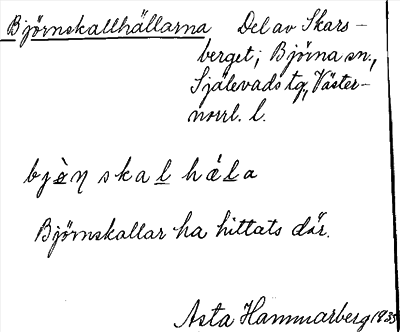 Björnskallhällarna Del av Skars-
berget; Björna sn.,
Själevads tg., Väster-
norrl. l.
bjɵ̀ŋ skaḷ háḷa
Björnskallar ha hittats där.
Asta Hammarberg 1935